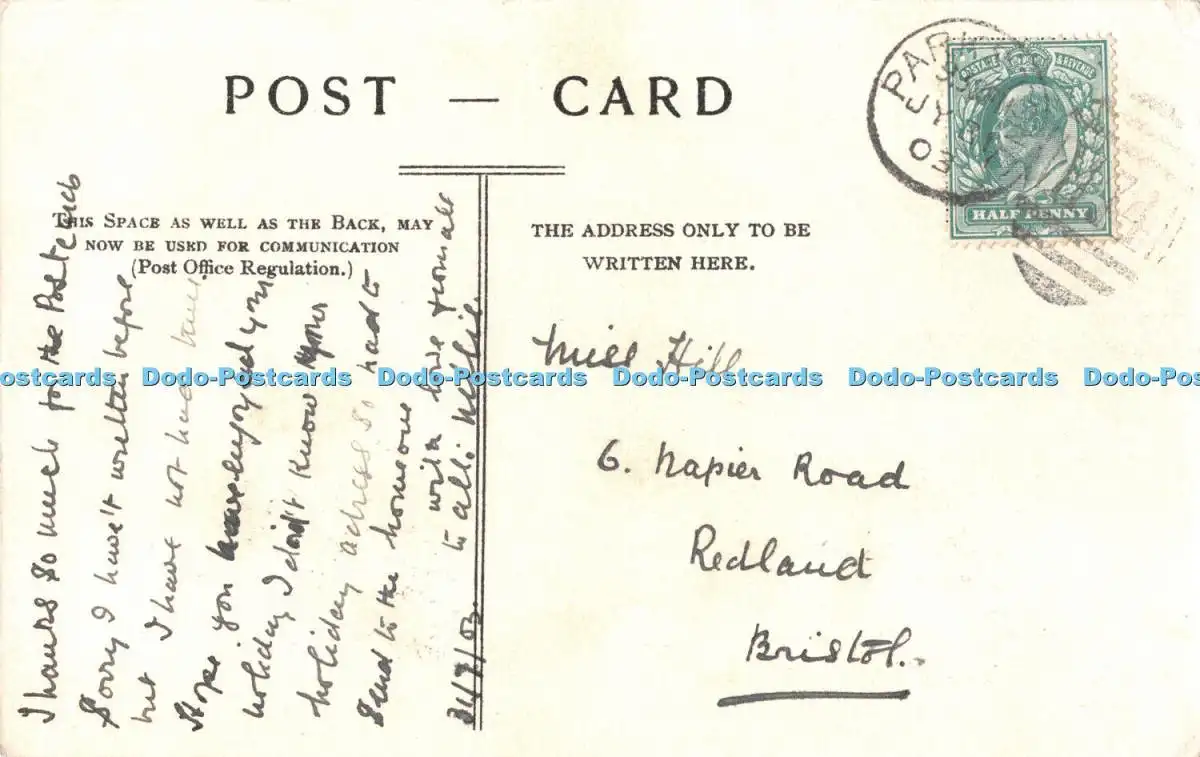 POST — CARD
THIS SPACE AS WELL AS THE BACK, MAY
NOW BE USED FOR COMMUNICATION
(Post Office Regulation.)
THE ADDRESS ONLY TO BE
WRITTEN HERE.
JY
03
POSTAGE & REVENUE
HALF PENNY
Thanks so much for the Postcards
Sorry I haven't written before
but I have not had time
Hope you have enjoyed your
holiday I didn't know your
holiday adress so had to
send to the home one
31/7/03 with love from all
to all. Nellie
Miss Hill
6. Napier Road
Redland
Bristol.
ostcards Dodo-Postcards Dodo-Postcards Dodo-Postcards Dodo-Postcards Dodo-Postc